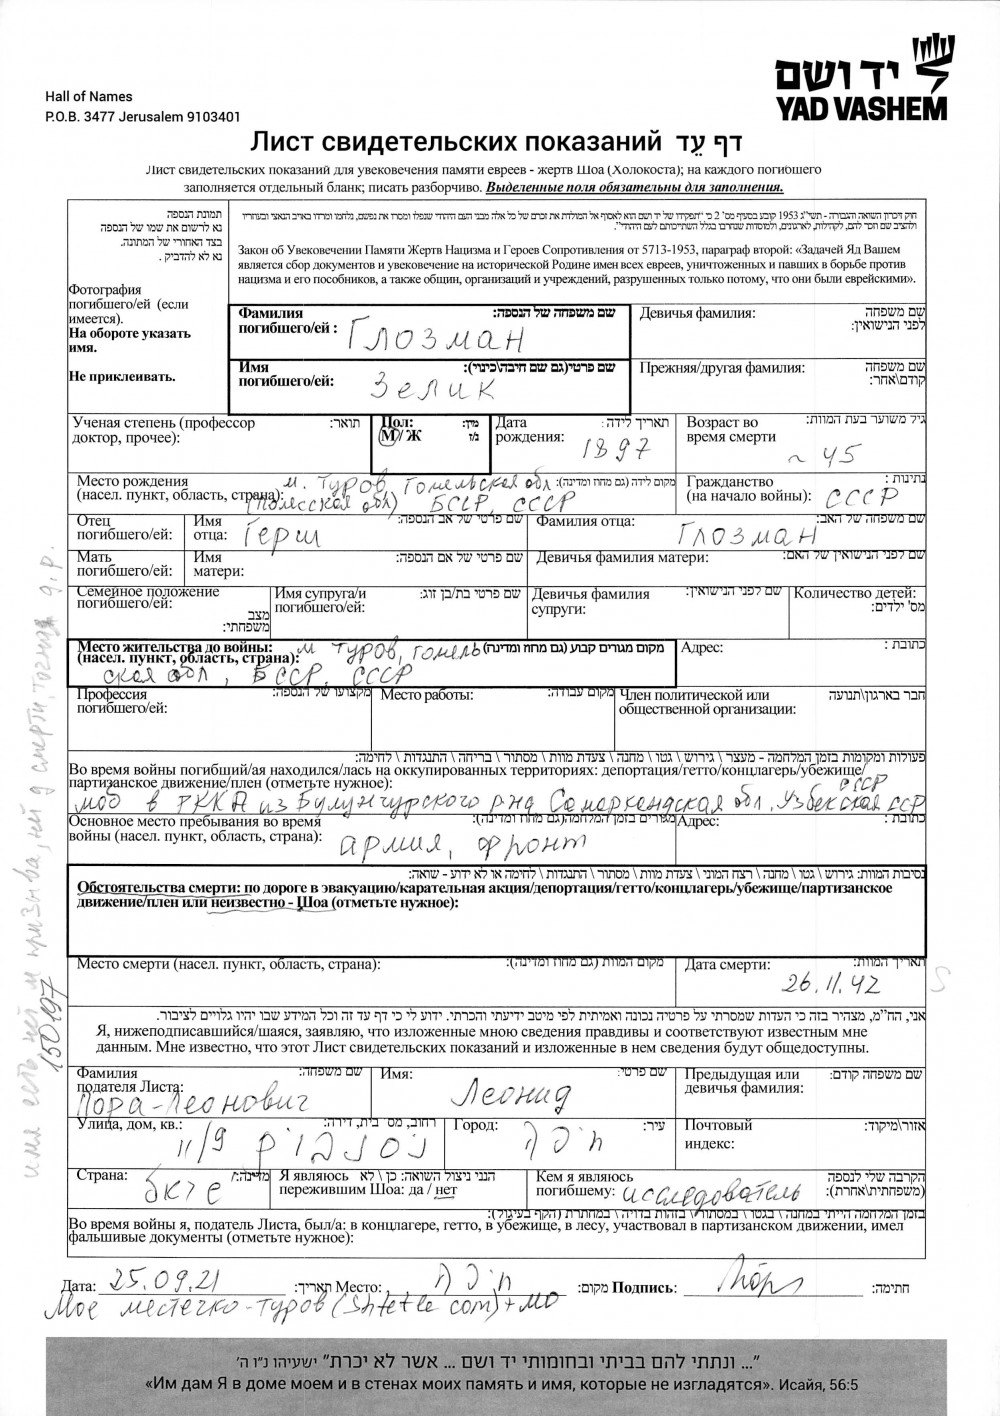 יד ושם
YAD VASHEM
Hall of Names
P.O.B. 3477 Jerusalem 9103401
Лист свидетельских показаний דף עֵד
Лист свидетельских показаний для увековечения памяти евреев - жертв Шоа (Холокоста); на каждого погибшего
заполняется отдельный бланк; писать разборчиво. Выделенные поля обязательны для заполнения.
תמונת הנספה
נא לרשום את שמו של הנספה
בצד האחורי של המתונה.
נא לא להדביק .
Фотография
погибшего/ей (если
имеется).
На обороте указать
имя.
Не приклеивать.
חוק זיכרון השואה והגבורה - תשי"ג 1953 קובע בסעיף מס' 2 כי "תפקידו של יד ושם הוא לאסוף אל המולדת את זכרם של כל אלה מבני העם היהודי שנפלו ומסרו את נפשם, נלחמו ומרדו באויב הנאצי ובעוזריו
ולהציב שם וזכר להם, לקהילות, לארגונים, ולמוסדות שנחרבו בגלל השתייכותם לעם היהודי".
Закон об Увековечении Памяти Жертв Нацизма и Героев Сопротивления от 5713-1953, параграф второй: «Задачей Яд Вашем
является сбор документов и увековечение на исторической Родине имен всех евреев, уничтоженных и павших в борьбе против
нацизма и его пособников, а также общин, организаций и учреждений, разрушенных только потому, что они были еврейскими».
Фамилия שם משפחה של הנספה:
погибшего/ей : Глозман
Девичья фамилия: שם משפחה
לפני הנישואין:
Имя שם פרטי(גם שם חיבה\כינוי):
погибшего/ей: Зелик
Прежняя/другая фамилия: שם משפחה
קודם\אחר:
Ученая степень (профессор תואר:
доктор, прочее):
Пол: מין:
М / Ж ז/נ
Дата תאריך לידה:
рождения: 1897
Возраст во גיל משוער בעת המוות:
время смерти ~ 45
Место рождения м. Туров, Гомельская обл מקום לידה (גם מחוז ומדינה):
(насел. пункт, область, страна): (Полесская обл) БССР, СССР
Гражданство נתינות:
(на начало войны): СССР
Отец
погибшего/ей:
Имя שם פרטי של אב הנספה:
отца: Герш
Фамилия отца: Глозман שם משפחה של האב:
Мать
погибшего/ей:
Имя שם פרטי של אם הנספה:
матери:
Девичья фамилия матери: שם לפני הנישואין של האם:
Семейное положение
погибшего/ей: מצב
משפחתי:
Имя супруга/и שם פרטי בת/בן זוג:
погибшего/ей:
Девичья фамилия שם לפני הנישואין:
супруги:
Количество детей:
מס' ילדים:
Место жительства до войны: м Туров, Гомель מקום מגורים קבוע (גם מחוז ומדינה)
(насел. пункт, область, страна): ская обл, БССР, СССР
Адрес: כתובת :
Профессия מקצועו של הנספה:
погибшего/ей:
Место работы: מקום עבודה:
Член политической или חבר בארגון\תנועה
общественной организации:
פעולות ומקומות בזמן המלחמה - מעצר \ גירוש \ גטו \ מחנה \ צעדת מוות \ מסתור \ בריחה \ התנגדות \ לחימה:
Во время войны погибший/ая находился/лась на оккупированных территориях: депортация/гетто/концлагерь/убежище/
партизанское движение/плен (отметьте нужное): СССР
моб в РККА из Булунгурского рна Самаркандская обл. Узбекская ССР
Основное место пребывания во время מגורים בזמן המלחמה(גם מחוז ומדינה):
войны (насел. пункт, область, страна): армия, фронт
Адрес: כתובת :
נסיבות המוות: גירוש \ גטו \ מחנה \ רצח המוני \ צעדת מוות \ מסתור \ התנגדות \ לחימה או לא ידוע - שואה:
Обстоятельства смерти: по дороге в эвакуацию/карательная акция/депортация/гетто/концлагерь/убежище/партизанское
движение/плен или неизвестно - Шоа (отметьте нужное):
Место смерти (насел. пункт, область, страна): מקום המוות (גם מחוז ומדינה):
Дата смерти: תאריך המוות:
26.11.42
אני, הח"מ, מצהיר בזה כי העדות שמסרתי על פרטיה נכונה ואמיתית לפי מיטב ידיעתי והכרתי. ידוע לי כי דף עד זה וכל המידע שבו יהיו גלויים לציבור.
Я, нижеподписавшийся/шаяся, заявляю, что изложенные мною сведения правдивы и соответствуют известным мне
данным. Мне известно, что этот Лист свидетельских показаний и изложенные в нем сведения будут общедоступны.
Фамилия שם משפחה:
подателя Листа: Пора-Леонович
Имя: שם פרטי:
Леонид
Предыдущая или שם משפחה קודם:
девичья фамилия:
Улица, дом, кв.: רחוב, מס' בית, דירה:
11/9
Город: חיפה עיר:
Почтовый אזור\מיקוד:
индекс:
Страна: מדינה:
Я являюсь הנני ניצול השואה: כן \ לא
пережившим Шоа: да / нет
Кем я являюсь הקרבה שלי לנספה
погибшему: исследователь (משפחתית\אחרת):
בזמן המלחמה הייתי במחנה \ בגטו \ במסתור \ בזהות בדויה \ במחתרת (הקף בעיגול):
Во время войны я, податель Листа, был/а: в концлагере, гетто, в убежище, в лесу, участвовал в партизанском движении, имел
фальшивые документы (отметьте нужное):
Дата: 25.09.21 תאריך: Место: חיפה מקום: Подпись: חתימה:
Мое местечко-Туров (Shtetle com) + МО
имя есть призыва, смерти, точная д.р.
150197
"... ונתתי להם בביתי ובחומותי יד ושם ... אשר לא יכרת" ישעיהו נ"ו ה'
«Им дам Я в доме моем и в стенах моих память и имя, которые не изгладятся». Исайя, 56:5